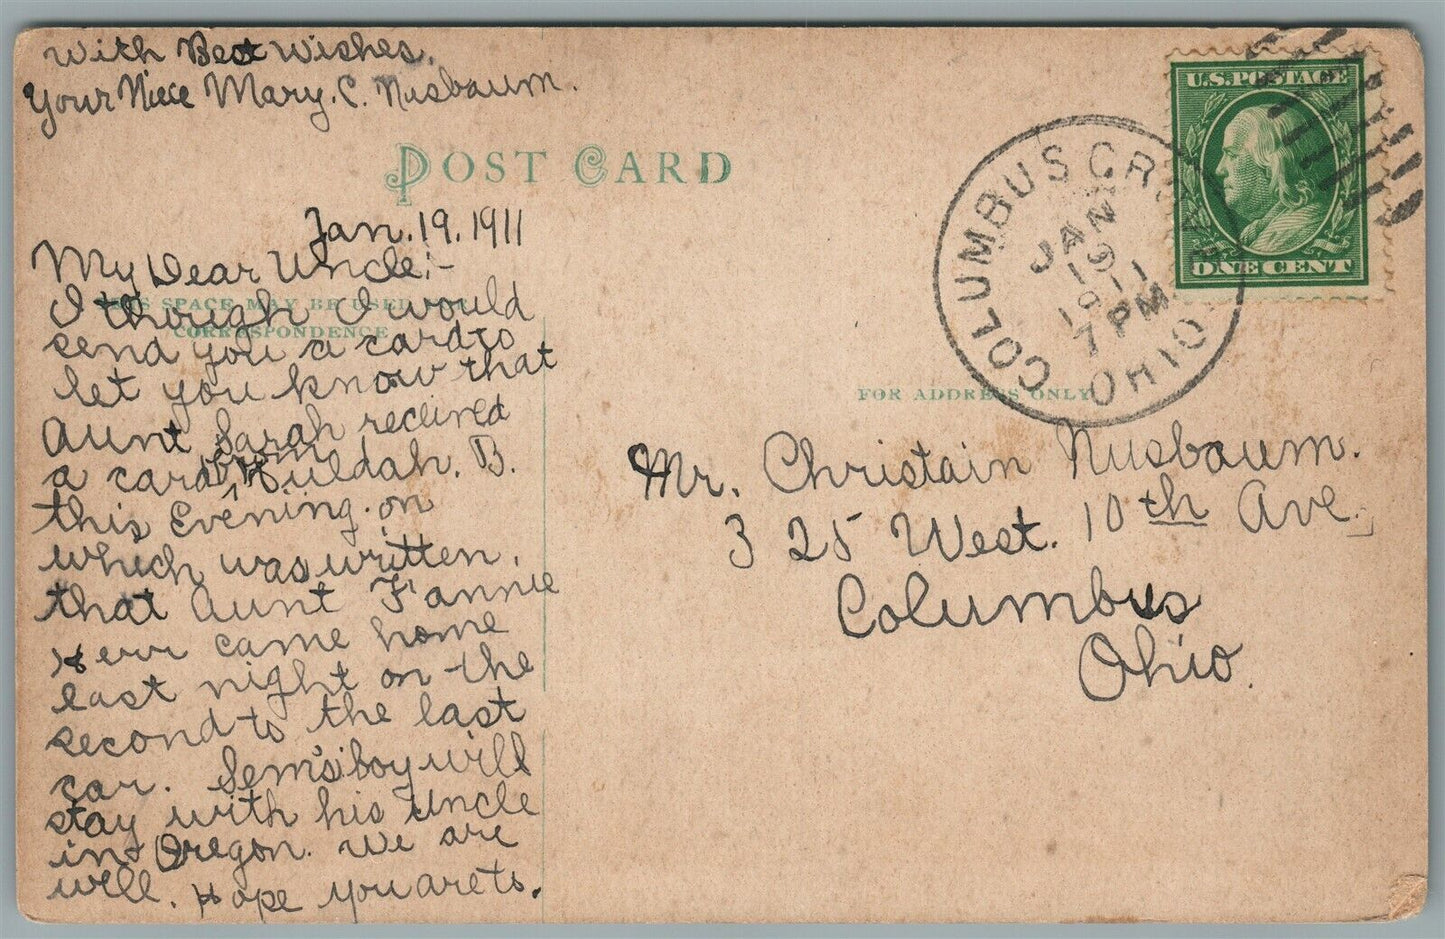 With Best Wishes.
Your Niece Mary. C. Nusbaum.
POST CARD
Jan. 19. 1911
My Dear Uncle:-
THIS SPACE MAY BE USED FOR
CORRESPONDENCE
I though I would
send you a card to
let you know that
Aunt Sarah recieved
a card from Huldah. B.
this Evening. on
which was written,
that Aunt Fannie
Herr came home
last night on the
second to the last
car. Sem's boy will
stay with his uncle
in Oregon. We are
well. Hope you are to.
U.S. POSTAGE
ONE CENT
COLUMBUS GROVE
JAN
19
1911
7 PM
OHIO
FOR ADDRESS ONLY
Mr. Christain Nusbaum.
325 West. 10th Ave.
Columbus
Ohio.